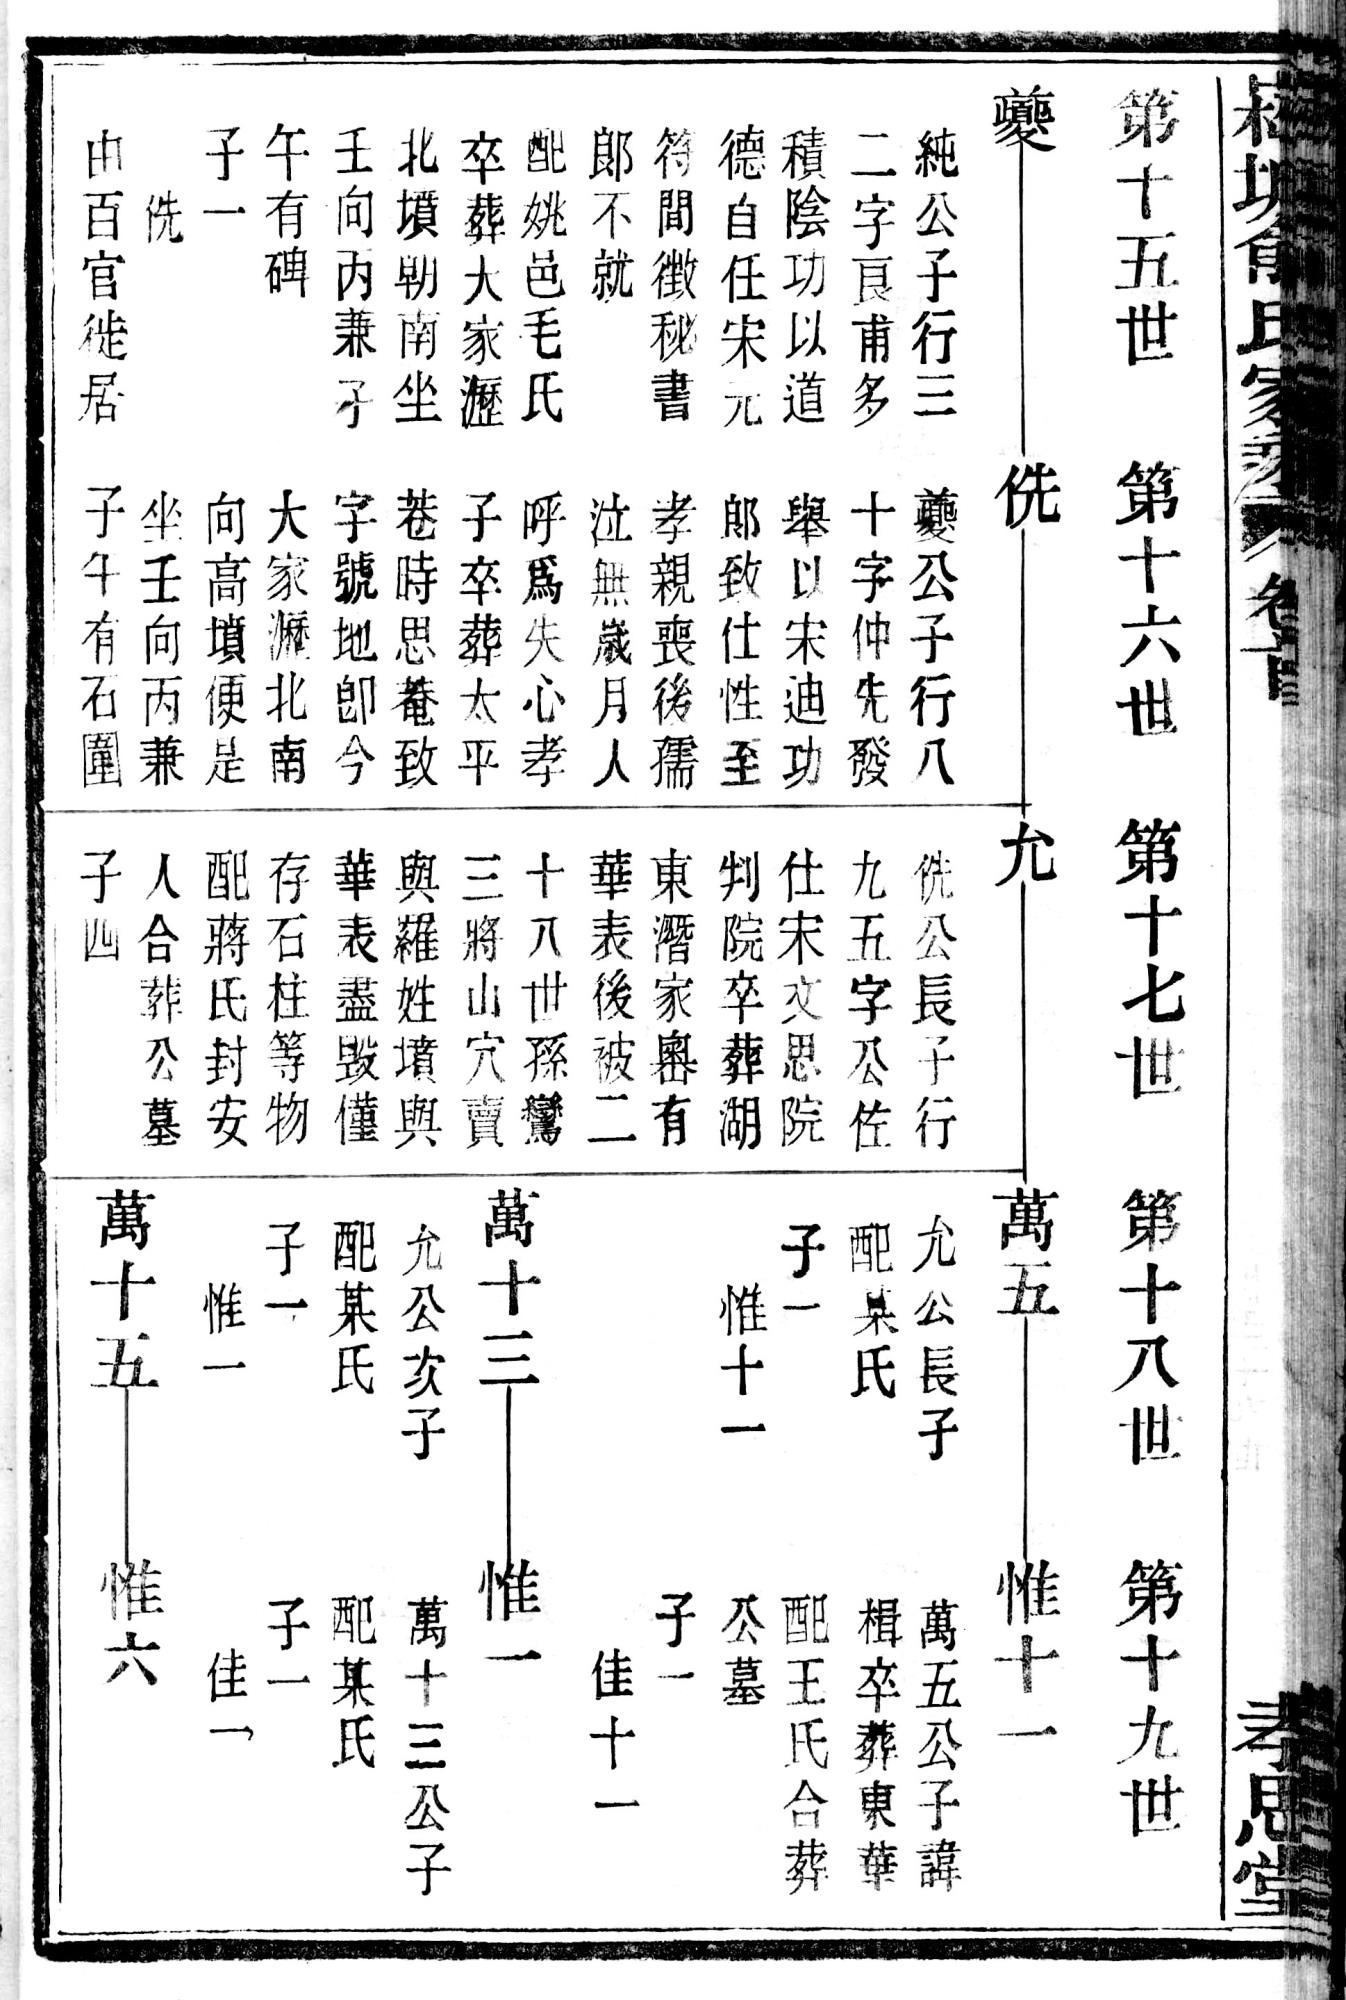 俞氏家
卷首
孝思堂
第十五世
第十六世
第十七世
第十八世
第十九世
夔
純公子行三
二字良甫多
積陰功以道
德自任宋元
符間徵秘書
郎不就
配姚邑毛氏
卒葬大家瀝
北墳朝南坐
壬向丙兼子
午有碑
子一
侁
由百官徙居
侁
夔公子行八
十字仲先發
舉以宋迪功
郎致仕性至
孝親喪後孺
泣無歲月人
呼爲失心孝
子卒葬太平
菴時思菴致
字號地卽今
大家瀝北南
向高墳便是
坐壬向丙兼
子午有石圍
允
侁公長子行
九五字公佐
仕宋文思院
判院卒葬湖
東潛家嶴有
華表後被二
十八世孫鸞
三將山穴賣
與羅姓墳與
華表盡毀僅
存石柱等物
配蔣氏封安
人合葬公墓
子四
萬五
允公長子
配某氏
子一
惟十一
萬十三
允公次子
配某氏
子一
惟一
萬十五
惟十一
萬五公子諱
楫卒葬東華
配王氏合葬
公墓
子一
佳十一
惟一
萬十三公子
配某氏
子一
佳一
惟六